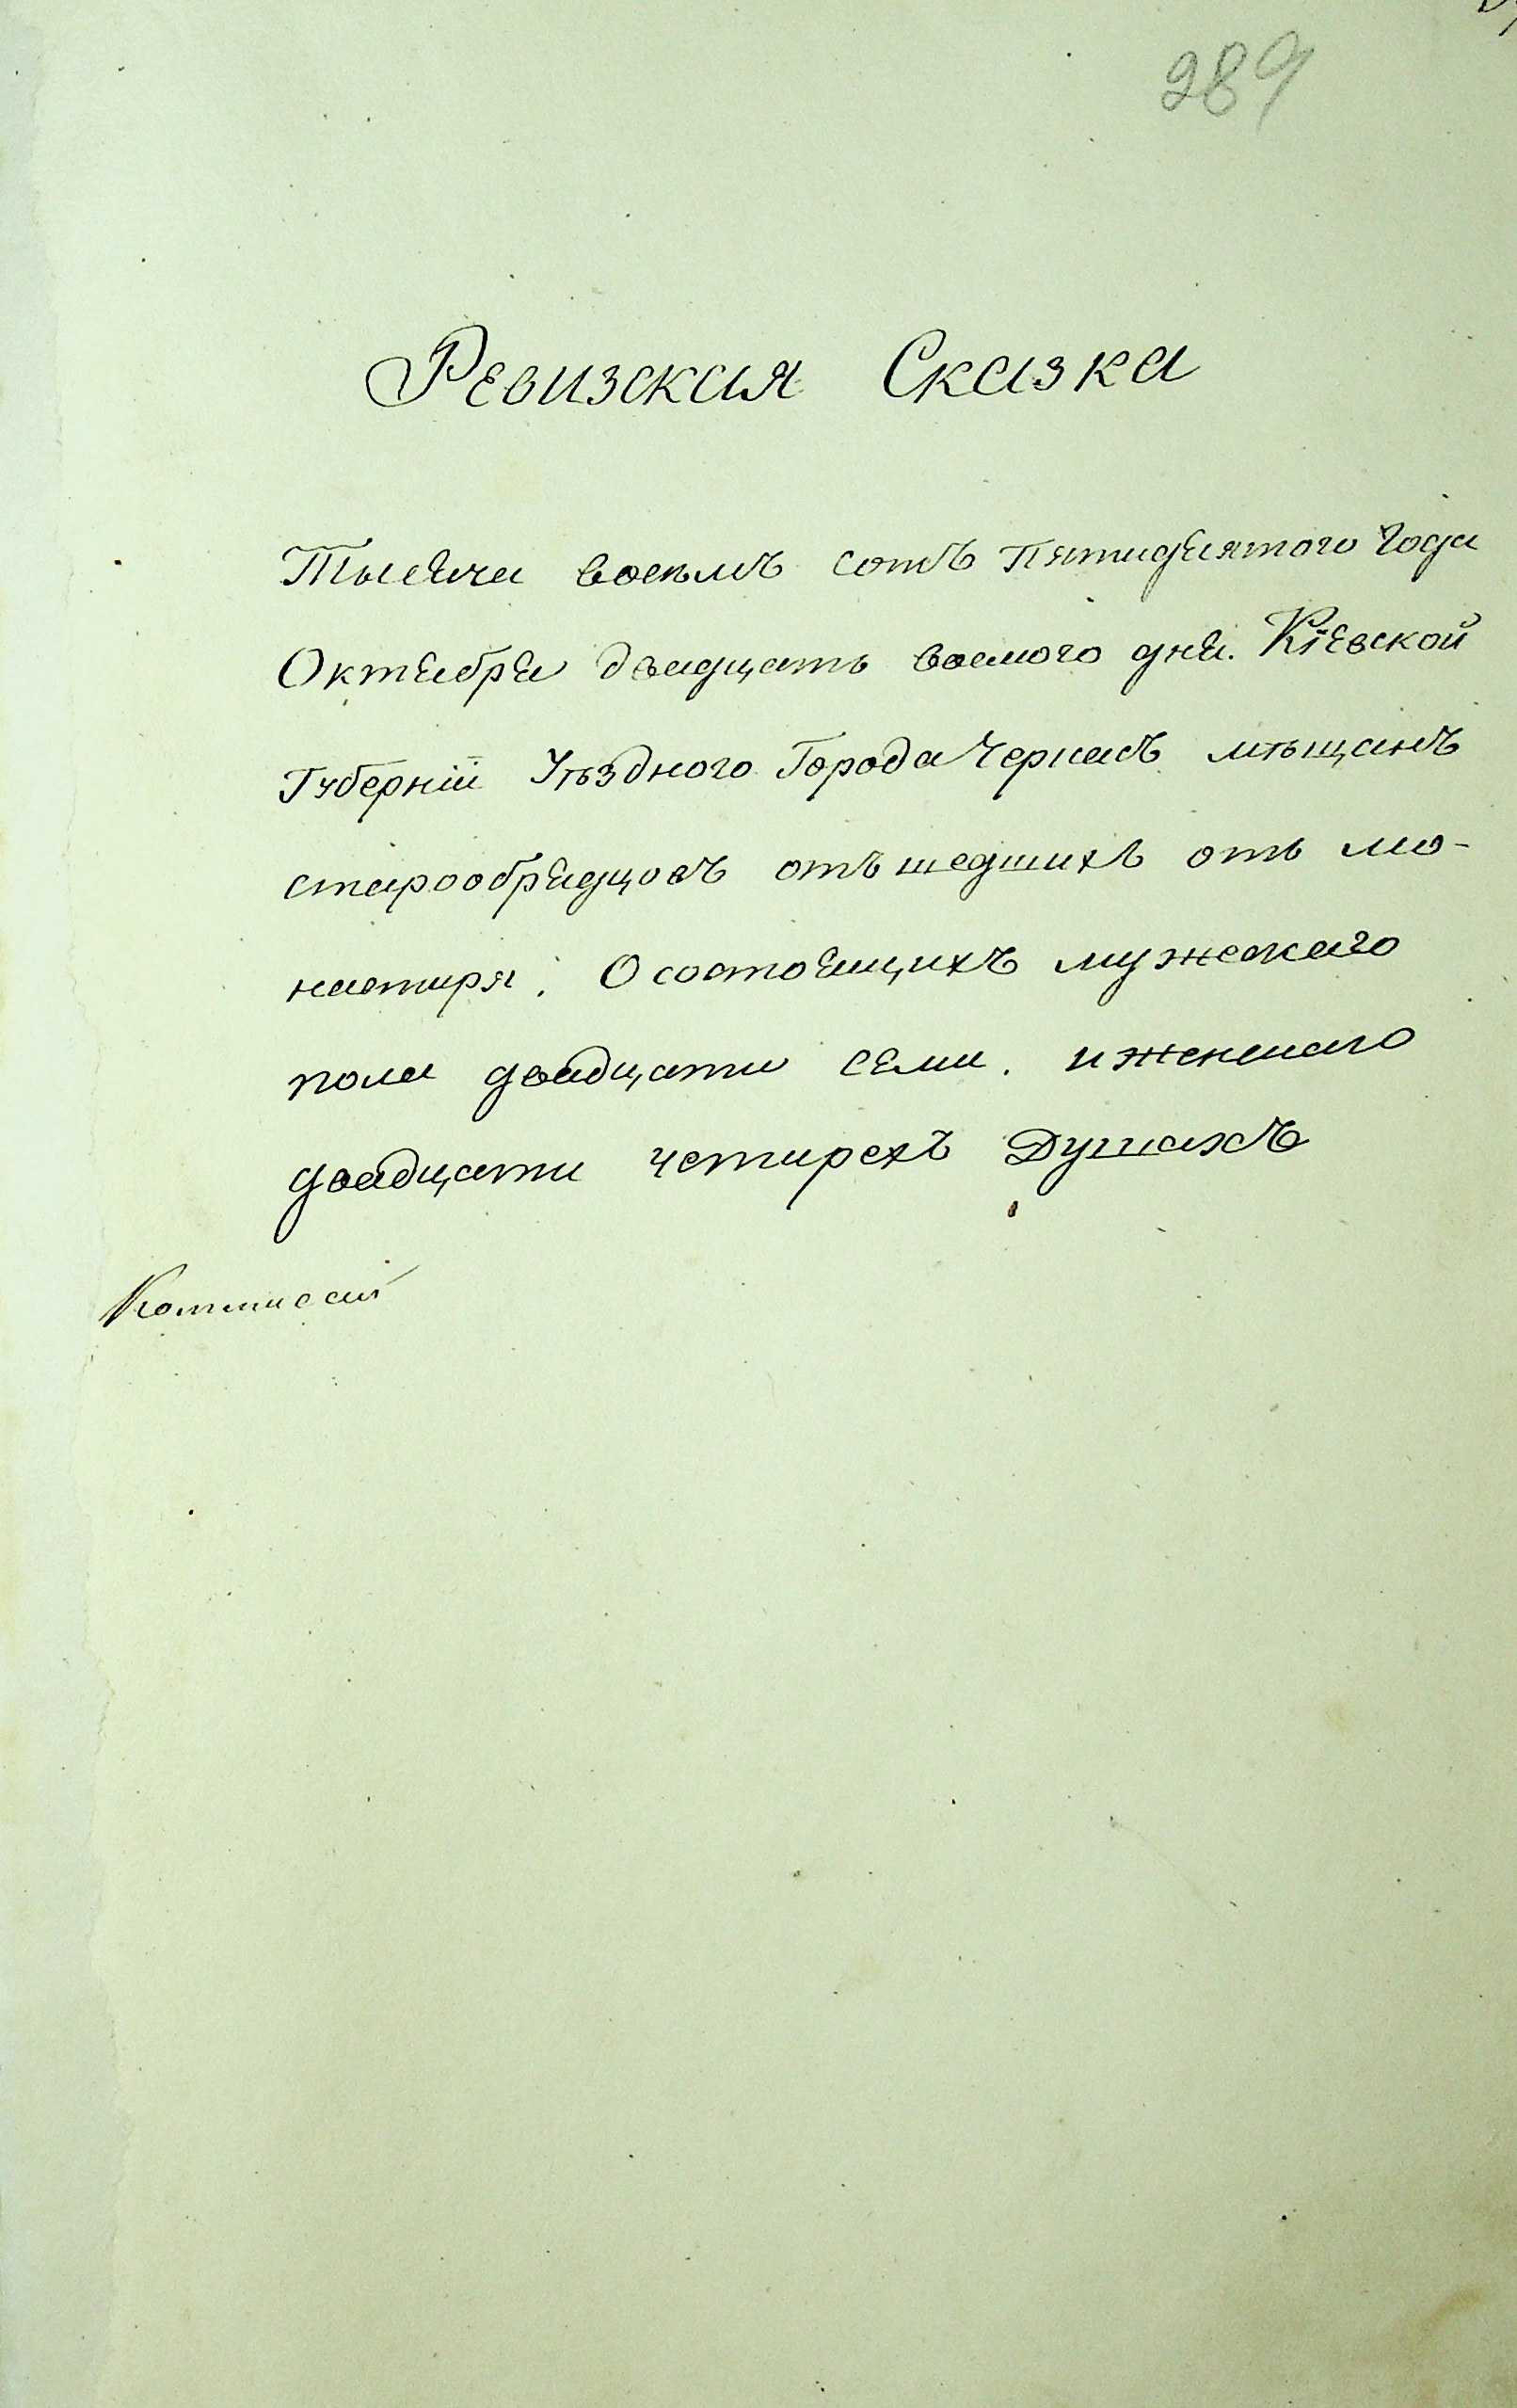 289
Ревизская Сказка
Тысяча восемъ сотъ Пятидесятого Года
Октября двадцать восмого дня. Кіевской
Губерніи Уѣздного Города Черкасъ мѣщанъ
старообрядцовъ отъшедшихъ отъ мо-
настиря. О состоящихъ мужескаго
пола двадцати семи. и женскаго
двадцати четирехъ Душахъ